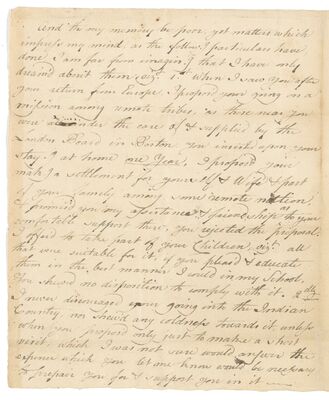 And tho' my memory be poor, yet matters which
impress my mind, as the follow.g particulars have
done, I am far from imagin.g that I have only
dreamd about them viz.t 1.st When I saw you after
your return from Europe, I propos.d your going on a
mission among remote tribes, as there was you
were under the care of & supplied by the
London Board in Boston you insisted upon your
stay.g at home one Year, I propos.d your
mak.g a settlement for yourself & Wife & part
of your family among some remote nation
& promised you my assistance & friend ship to your
comfortable support there, you rejected the proposal.
I offerd to take part of your Children, viz.t all
that were suitable for it, if you pleas.d & educate
them in the best manner I could in my School,
You shewd no disposition to comply with it. 2.dly
I never discouraged your going into the Indian
Country, nor shew'd any coldness towards it, unless
when you propos.d only just to make a short
visit, which I was not sure would answer the
expence which you let me know would be necessary
to prepare you for & support you in it —